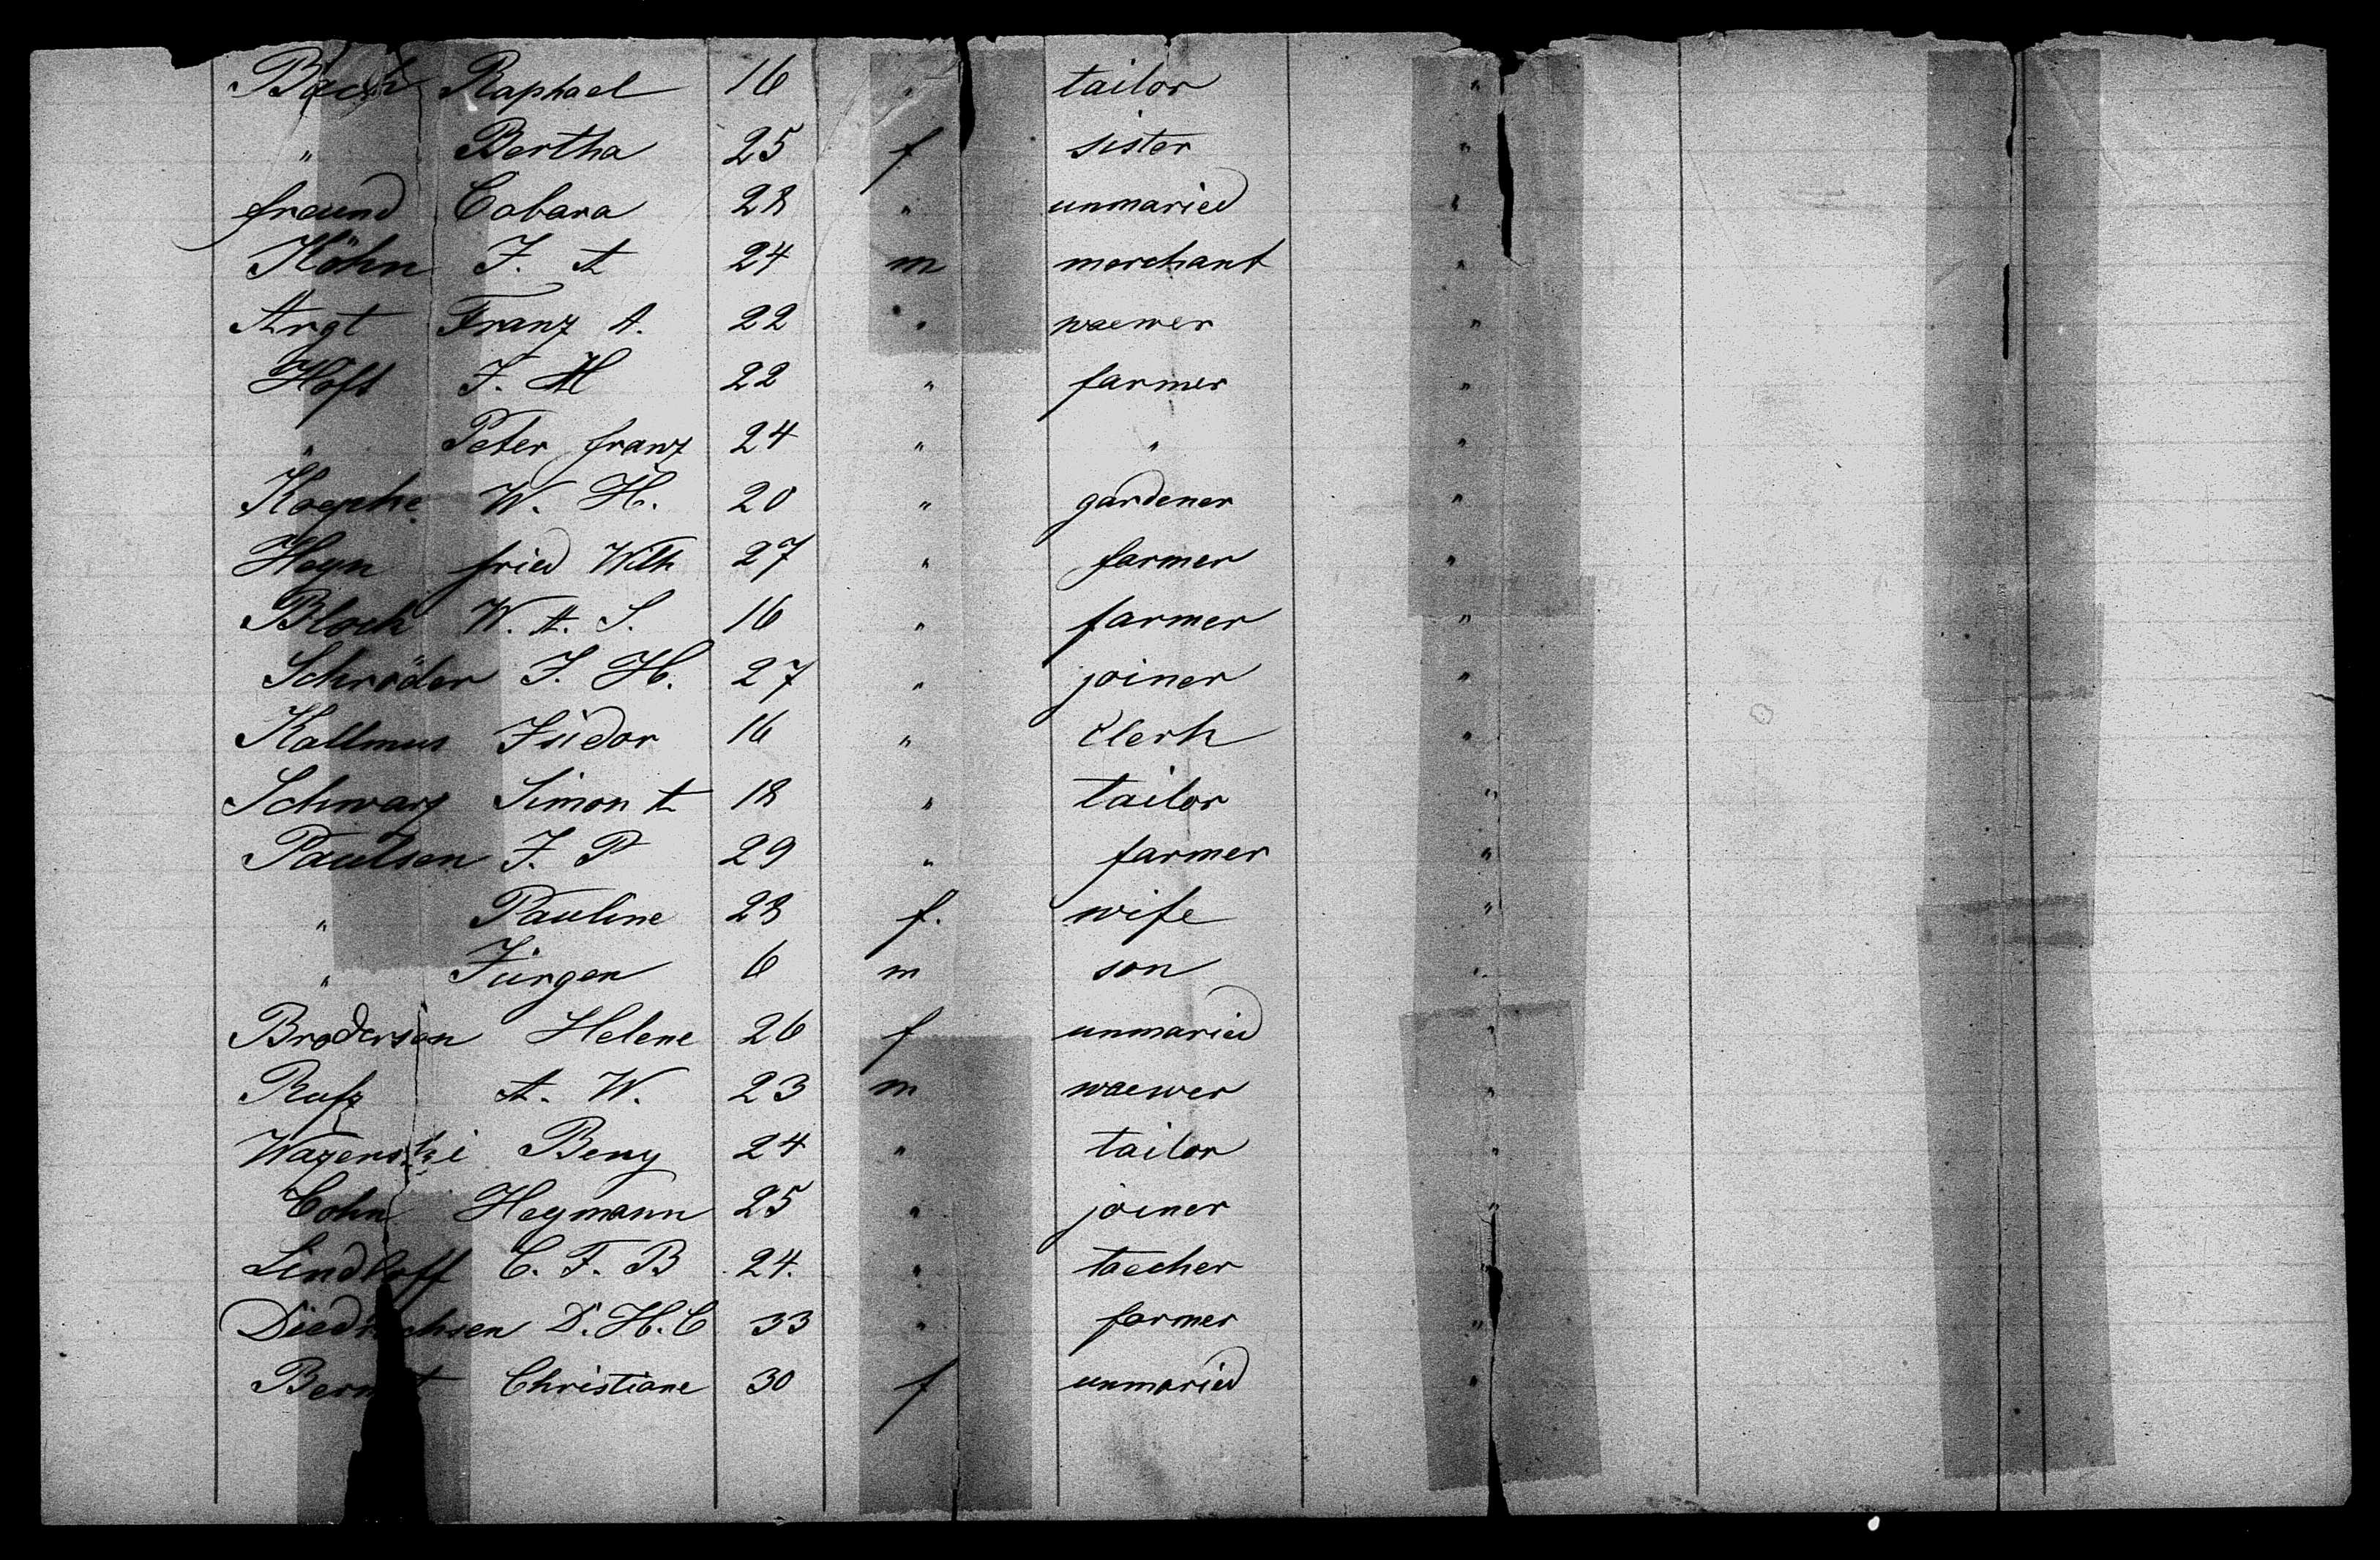 Bach Raphael 16 " tailor "
" Bertha 25 f sister "
freund Cabara 28 " unmaried "
Höhn J. A 24 m merchant "
Argt Franz A. 22 " waewer "
Höft J. M 22 " farmer "
" Peter franz 24 " " "
Koephe W. H. 20 " gardener "
Heyn fried Wilh 27 " farmer "
Bloch W. A. S. 16 " farmer "
Schröder J. H. 27 " joiner "
Kallmus Isidor 16 " Clerk "
Schwarz Simon A 18 " tailor "
Paulsen J. P 29 " farmer "
" Pauline 28 f. wife "
" Jürgen 6 m son "
Brodersen Helene 26 f unmaried "
A. W. 23 m waewer "
Beny 24 " tailor "
Cohn Heymann 25 " joiner "
Lindloff C. F. B 24. " taecher "
Diedrichsen D. H. C 33 " farmer "
Christiane 30 f unmaried "